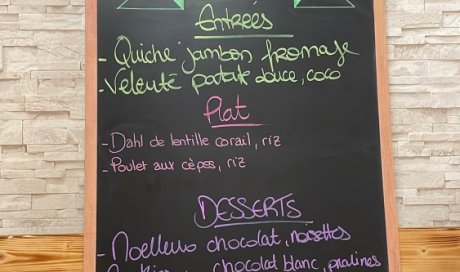 Entrées
- Quiche jambon fromage
- Velouté patate douce, coco
Plat
- Dahl de lentille corail, riz
- Poulet aux cèpes, riz
DESSERTS
- Moelleux chocolat, noisettes
chocolat blanc, pralines